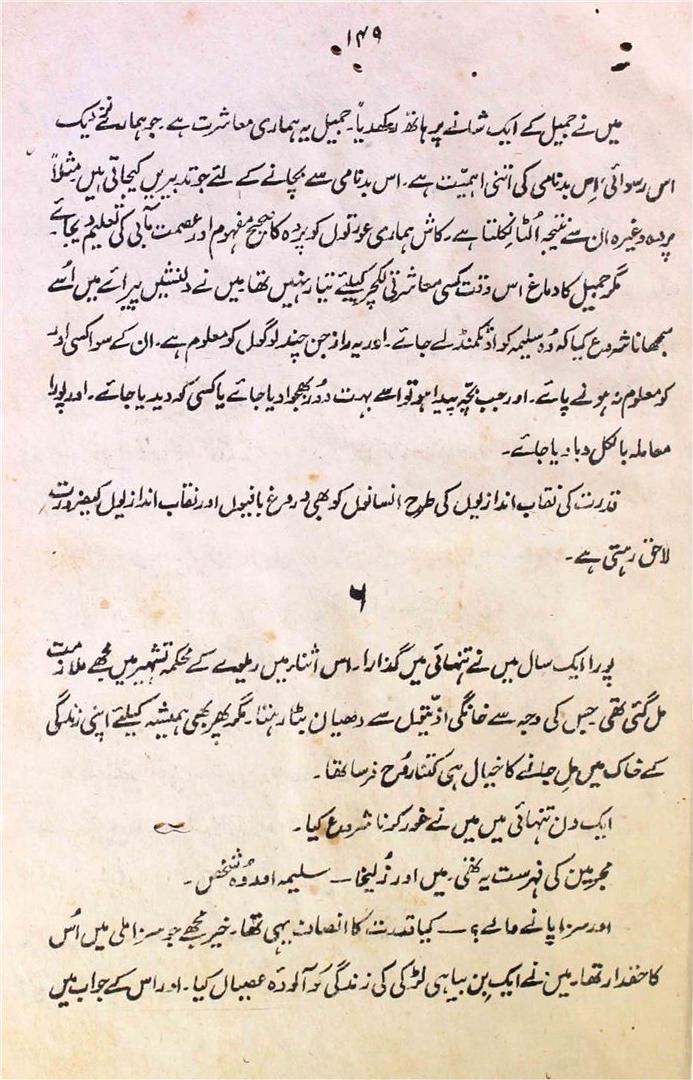 ۱۴۹
میں نے جمیل کے ایک شانے پر ہاتھ رکھدیا۔ جمیل یہ ہماری معاشرت ہے۔ جو ہمارے نزدیک
اس رسوائی، اس بدنامی کی اتنی اہمیّت ہے۔ اس بدنامی سے بچانے کے لئے جو تدبیریں کیجاتی ہیں مثلاً
پردہ وغیرہ ان سے نتیجہ اُلٹا نکلتا ہے۔ کاش ہماری عورتوں کو پردہ کا صحیح مفہوم اور عصمت مآبی کی تعلیم دیجائے۔
مگر جمیل کا دماغ اس وقت کسی معاشرتی لکچر کیلئے تیار نہیں تھا۔ میں نے دلنشیں پیرائے میں اُسے
سمجھانا شروع کیا کہ وُہ سلیمہ کو اوٹکمنڈ لے جائے۔ اور یہ راز جن چند لوگوں کو معلوم ہے۔ ان کے سوا کسی اور
کو معلوم نہ ہونے پائے۔ اور جب بچّہ پیدا ہو تو اسے بہت دور بھجوا دیا جائے یا کسی کو دیدیا جائے۔ اور پورا
معاملہ بالکل دبا دیا جائے۔
قدرت کی نقاب اندازیوں کی طرح انسانوں کو بھی دروغ بافیوں اور نقاب اندازیوں کی ضرورت
لاحق رہتی ہے۔
۶
پورا ایک سال میں نے تنہائی میں گذارا۔ اس اثنا میں ریلوے کے محکمہ تشہیر میں مجھے ملازمت
مل گئی تھی جس کی وجہ سے خانگی اذیّتوں سے دھیان بٹا رہتا۔ مگر پھر بھی ہمیشہ کیلئے اپنی زندگی
کے خاک میں مِل جانے کا خیال ہی کتنا رُوح فرسا تھا۔
ایک دن تنہائی میں میں نے غور کرنا شروع کیا۔
مجرمین کی فہرست یہ تھی۔ میں اور زُلیخا — سلیمہ اور وُہ شخص۔
اور سزا پانے والے؟ — کیا قدرت کا انصاف یہی تھا۔ خیر مجھے جو سزا ملی میں اُس
کا حقدار تھا۔ میں نے ایک بِن بیاہی لڑکی کی زندگی کو آلودہ عصیاں کیا۔ اور اس کے جواب میں